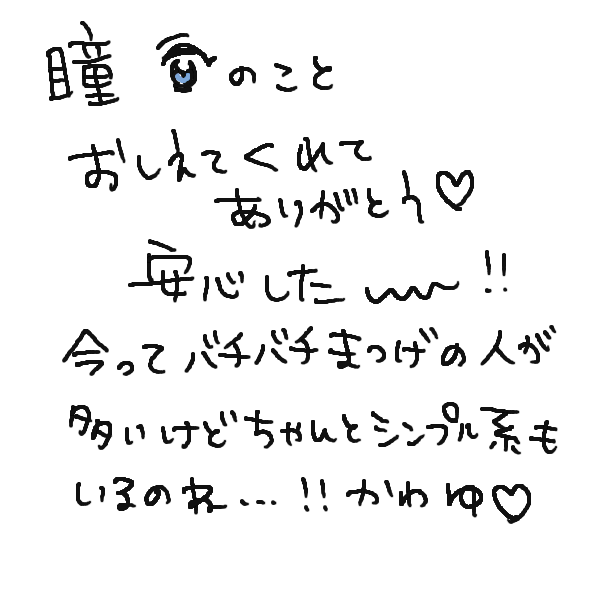 瞳のこと
おしえてくれて
ありがとう♡
安心した〜〜!!
今ってバチバチまつげの人が
多いけどちゃんとシンプル系も
いるのね...!!かわゆ♡